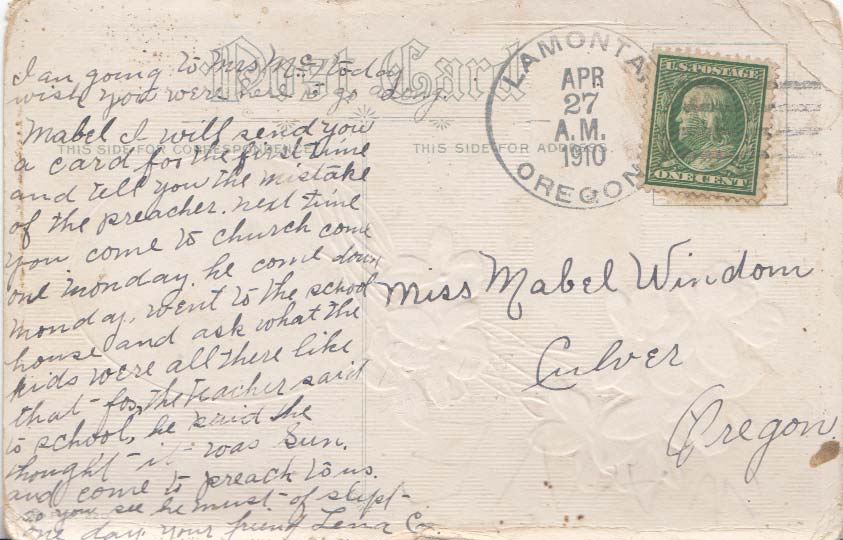 Post Card
THIS SIDE FOR CORRESPONDENCE.
THIS SIDE FOR ADDRESS.
LAMONTA,
APR
27
A.M.
1910
OREGON
U.S. POSTAGE
ONE CENT
I an going to Mrs Mc today
wish you were here to go along.
Mabel I will send you
a card for the first time
and tell you the mistake
of the preacher. next time
you come to church come
one monday. he come down
monday, went to the school
house and ask what the
kids were all there like
that for, the teacher said
to school, he said he
thought it was Sun.
and come to preach to us.
so you see he must of slept
one day. your friend Lena
Miss Mabel Windom
Culver
Oregon.